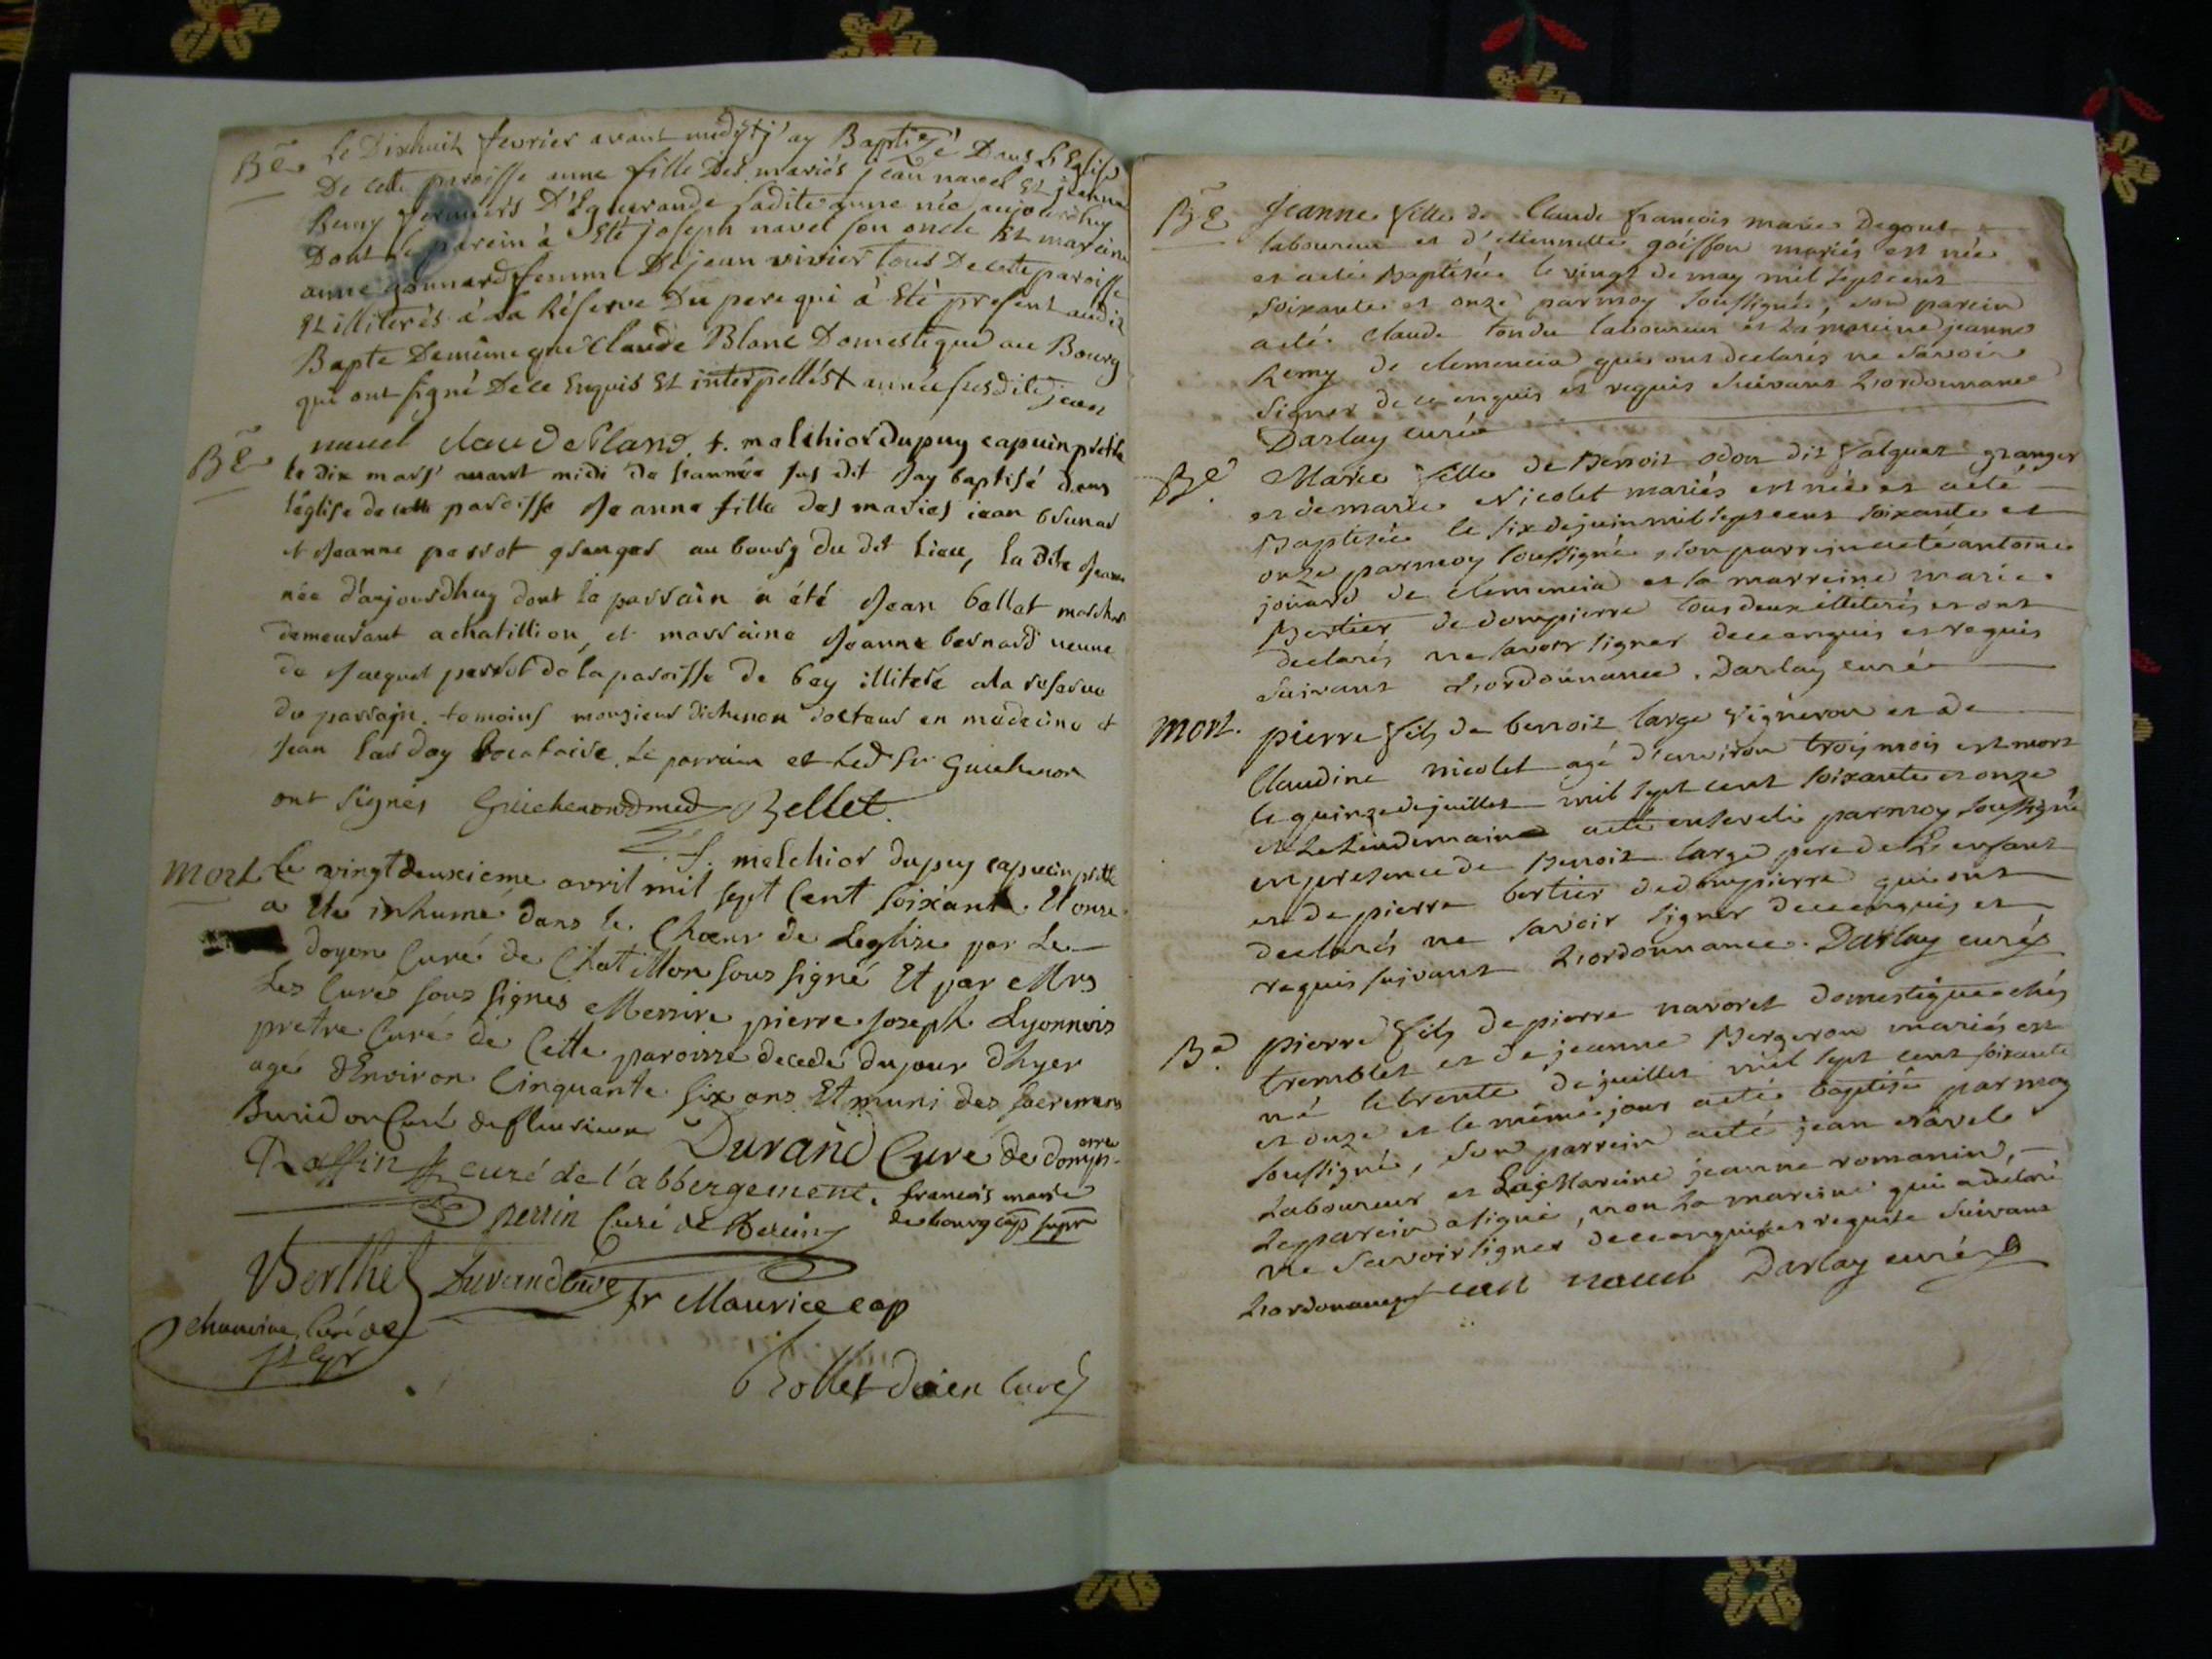 Bē Le Dixhuit fevrier avant midy j'ay Baptizé Dans L'Eglise
De cette paroisse anne fille Des mariés jean navel Et jeanne
Remy fermiers D'Eguerande laditte anne née aujourdhuy
Dont le parein à Eté joseph navel son oncle Et mareine
anne gonnard femme De jean vivier tous De cette paroisse
Et illiterés à La Réserve Du pere qui à Eté present audit
Bapte Demême que Claude Blanc Domestique au Bourg
qui ont signé De ce Enquis Et interpellést année susdite jean
navel claude Blanc f. malchior dupuy capucin prêtre
Bē le dix mars avant midi de l'année sus dit Jay baptisé dans
l'église de cette paroisse Jeanne fille des mariés jean brunad
et Jeanne perrot granger au bourg du dit lieu, la dite Jeanne
née d'aujourdhuy dont la parrain a été Jean bellat marchd
demeurant a chatillion, et marraine Jeanne bernard veuve
de Jacque perrot de la paroisse de bey illiteré a la reserve
du parrain. temoins monsieur Guichenon docteur en medecine et
Jean lardoy locataire. Le parrain et Led Sr Guichenon
ont signés Guichenon dmed Bellet
f. melchior dupuy capucin prêtre
Mort Le vingtdeuxieme avril mil sept Cent soixante Et onze
a été inhumé dans le Chœur de Leglise par Le
doyen Curé de Chatillon sous signé Et par Mrs
Les Curés sous signés Messire pierre Joseph Lyonnois
pretre Curé de Cette paroisse decedé du jour dhyer
agé d'Environ Cinquante six ans Et muni des sacremens
Buridon Curé de fleurieux Durand Cure de dompierre
Raffin curé de l'abbergement. francois marie
perrin Curé de de bourg cap supr
Berthet Durand Curé fr Maurice cap
chanoine, Curé de
st Cyr
Rollet Doien Curé
Bē Jeanne fille de Claude françois marie Degout
laboureur et d'étiennette goiffon mariés est née
et aeté Baptisée le vingt de may mil septcent
soixante et onze parmoy soussigné, son parein
aeté Claude tondu laboureur et La mareine jeanne
Remy de clemencia qui ont declarés ne savoir
signer de ce enquis et requis suivant L'ordonnance
Darlay curé
Bē Marie fille de Benoit odon dit falquet granger
et demarie Nicolet mariés est née et aeté
Baptisée le six dejuin mil sept cent soixante et
onze parmoy soussigné, son parrein aeté antoine
jouard de clemencia et la marreine marie
Bertier de dompierre tous deux illeterés et ont
declarés ne savoir signer de ce enquis et requis
suivant L'ordonnance. Darlay curé
Mort. pierre fils de benoit large vigneron et de
Claudine nicolet agé d'environ trois mois est mort
le quinze de juillet mil sept cent soixante et onze
et Le Lendemain aeté enseveli parmoy soussigné
en presence de Benoit large pere de L'enfant
et de pierre bertier de dompierre qui ont
declarés ne savoir signer de ce enquis et
requis suivant L'ordonnance. Darlay curé
Bē pierre fils de pierre navoret domestique chés
tremblet et de jeanne Bergeron mariés est
né le trente de juillet mil sept cent soixante
et onze et le même jour aeté baptisé par moy
soussigné, son parrein aeté jean navel
Laboureur et La Mareine jeanne romanin,
Le parein a signé, non La mareine qui a declaré
ne savoir signer de ce enquise et requise suivant
L'ordonance jean navel Darlay curé